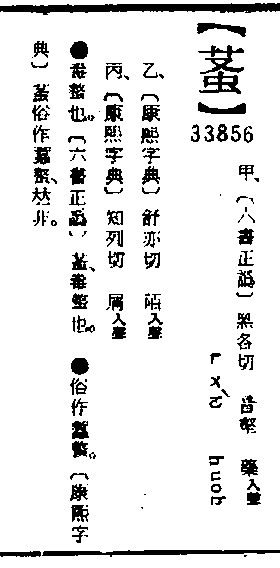 【蠚】
33856
甲、〔六書正譌〕黑各切 音壑 藥入聲
ㄏㄨㄛˋ huoh
乙、〔康熙字典〕舒亦切 陌入聲
丙、〔康熙字典〕知列切 屑入聲
●毒螫也。〔六書正譌〕蠚、毒螫也。●俗作蠚螫。〔康熙字
典〕蠚俗作蠚螫、𠀤非。